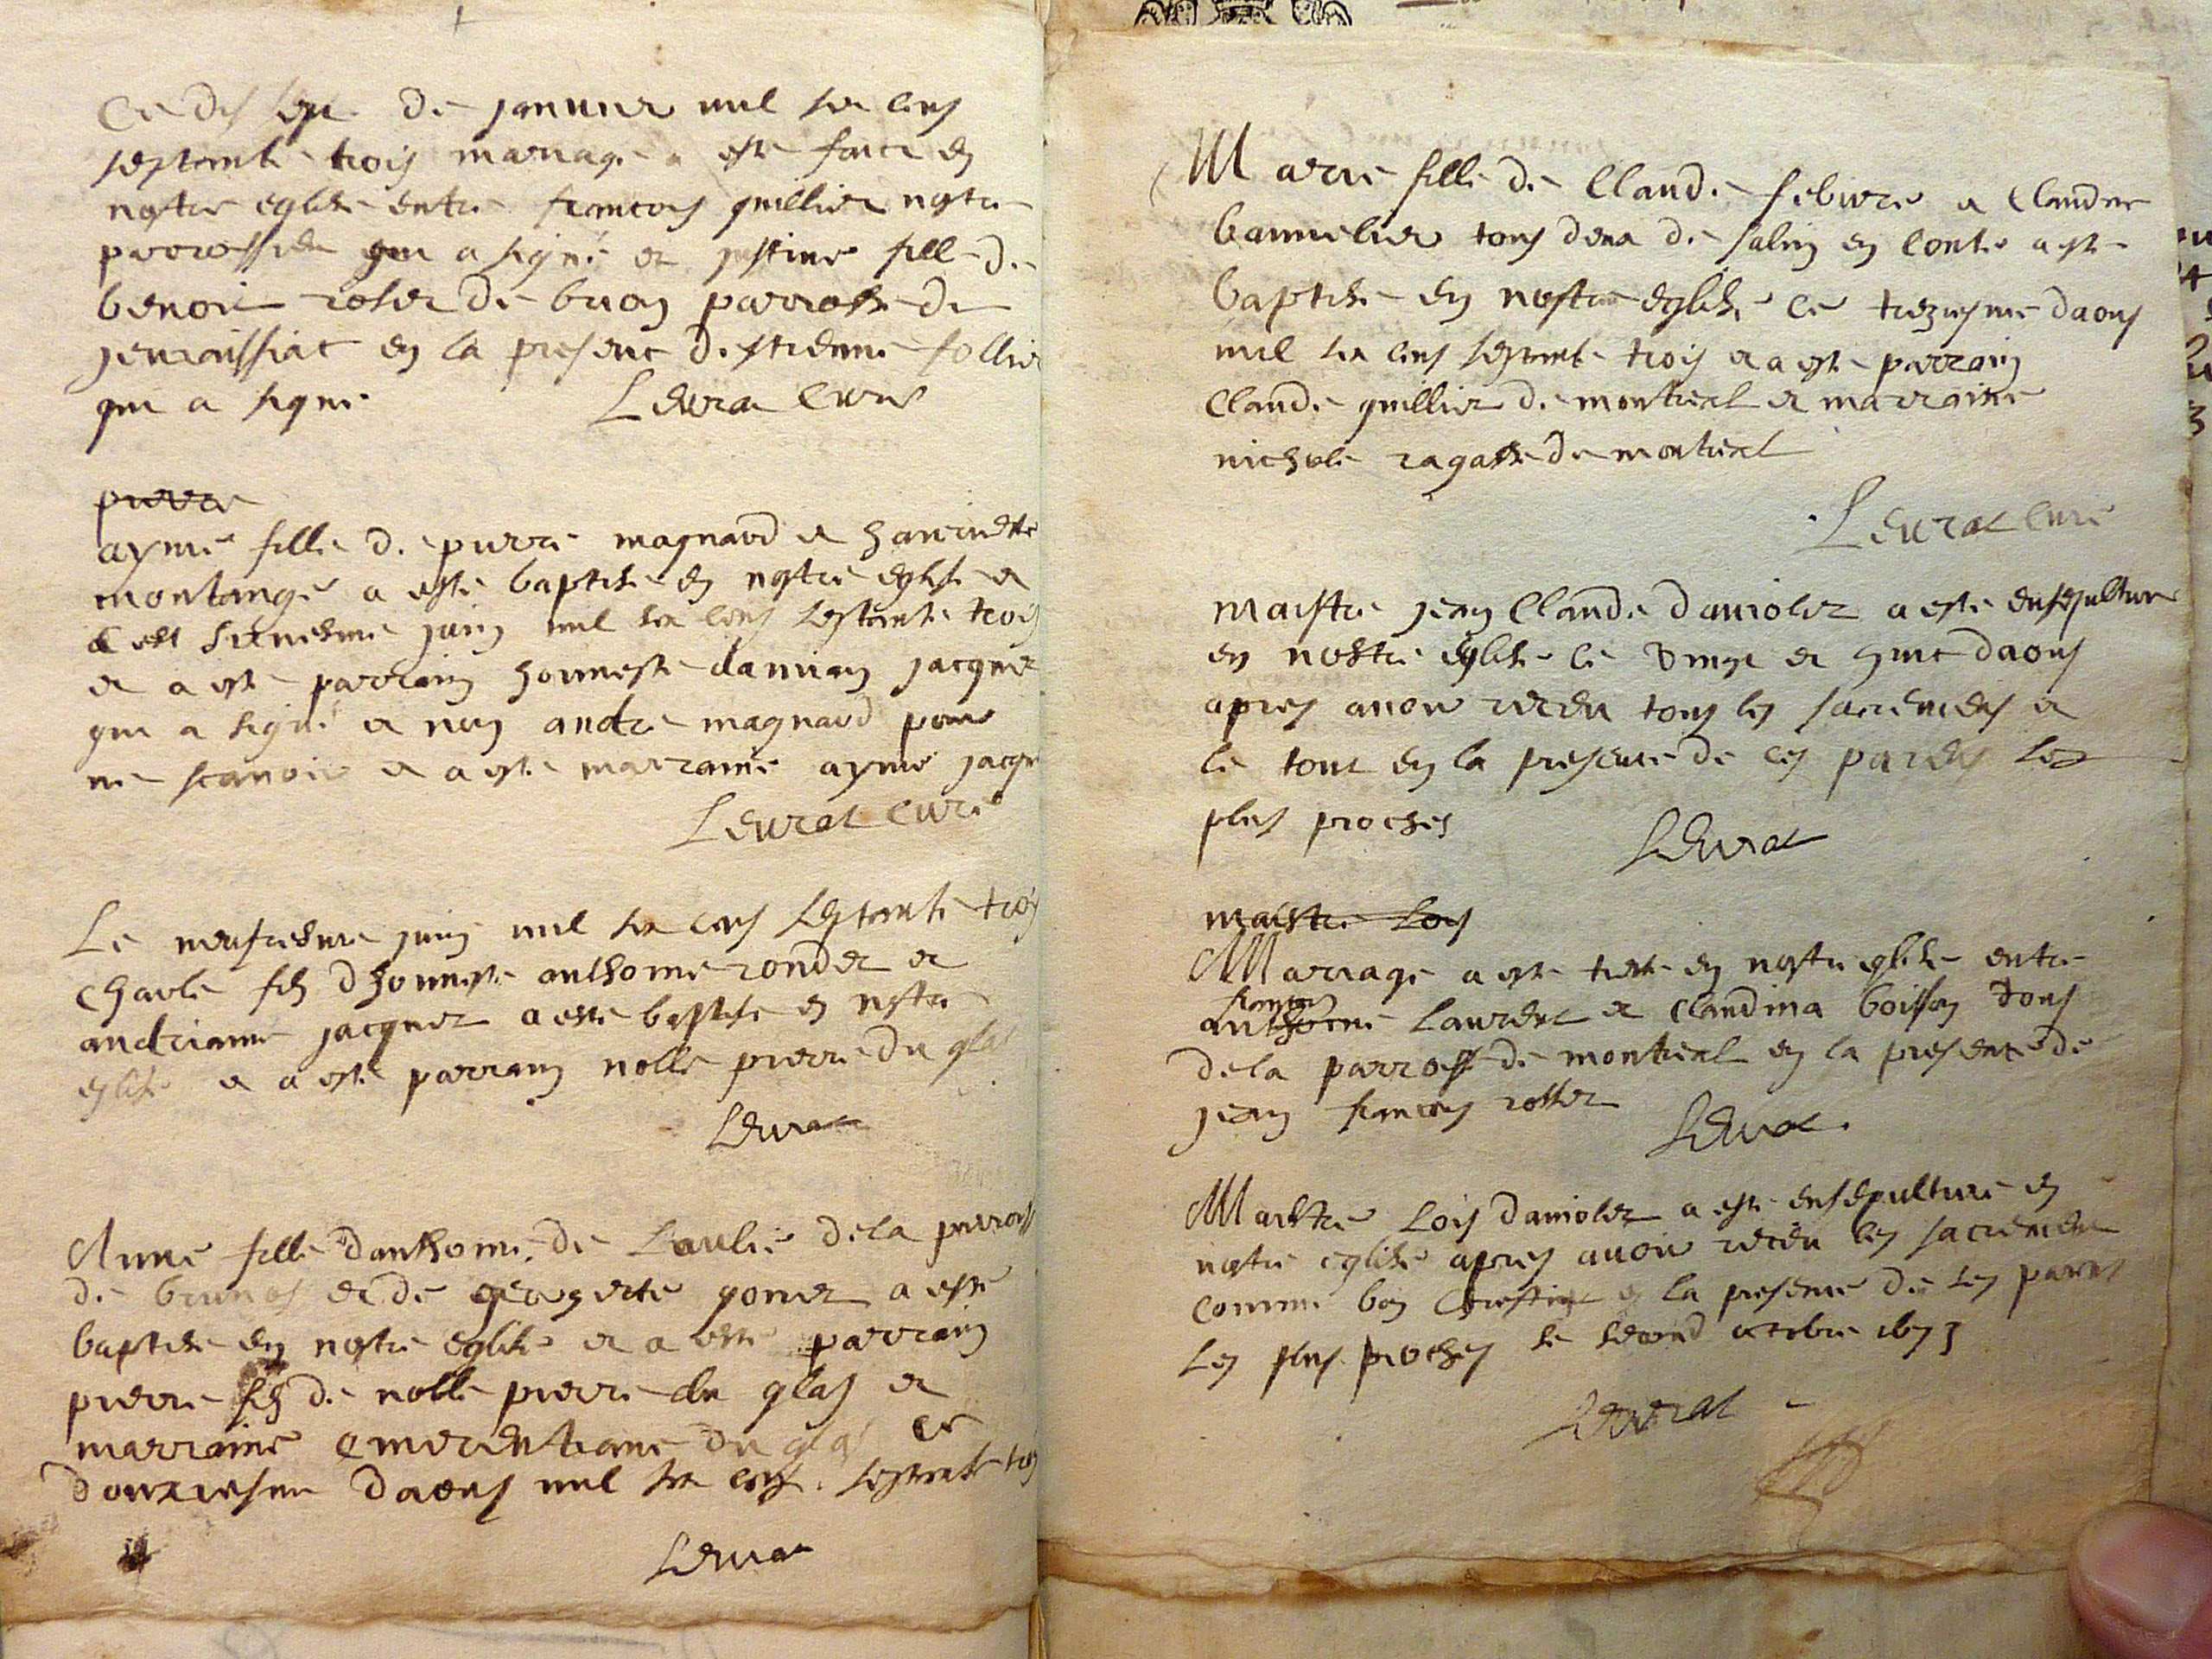 Ce dis sept de januier mil six cens
septante trois mariage a este faict en
nostre eglise entre francois guillier nostre
parrossien qui a signé et justine fille de
benoit rosier de brion parrosse de
jeurissiat en la presence destienne follier
qui a signe Leurat Cure
pierre
ayme fille de pierre magnard et hanriette
montange a este baptisee en nostre eglise
juin mil six cens septante trois
et a este parrain honneste damian jacquet
qui a signé et non andre magnard pour
ne scauoir et a este marraine ayme jacqu
Leurat Curé
Le neufiesme juin mil six cens septante trois
Charle fils dhonneste anthoine rondet et
andrianne jacquet a este baptise en nostre
eglise et a este parrain noble pierre du glas
Leurat
Anne fille danthoine de Laulie de la parross
de et de gonet a este
baptisee en nostre eglise et a este parrain
pierre fils de noble pierre du glas et
marraine emerentiane du glas ce
douziesme daous mil six cens septante trois
Leurat
Marie fille de Claude febure et Claudine
bannelier tous deux de salin en Conte a este
baptisee en nostre eglise ce treziesme daous
mil six cens septante trois et a este parrain
Claude guillier de montreal et marraine
nichole ragasse de montreal
Leurat Curé
maistre jean Claude daniolet a este ensepulture
en nostre eglise le vingt et daous
apres auoir receu tous les sacremens et
le tout en la presence de ces parens les
plus proches Leurat
maistre Lois
Mariage a este en nostre eglise entre
francois
anthoine Laurent et Claudina boisson tous
de la parrosse de montreal en la presence de
jean francois rosset Leurat
Maistre Lois daniolet a este ensepulture en
nostre eglise apres auoir receu les sacremens
comme bon Chrestien en la presence de ses parens
Les plus proches le second octobre 1673
Leurat